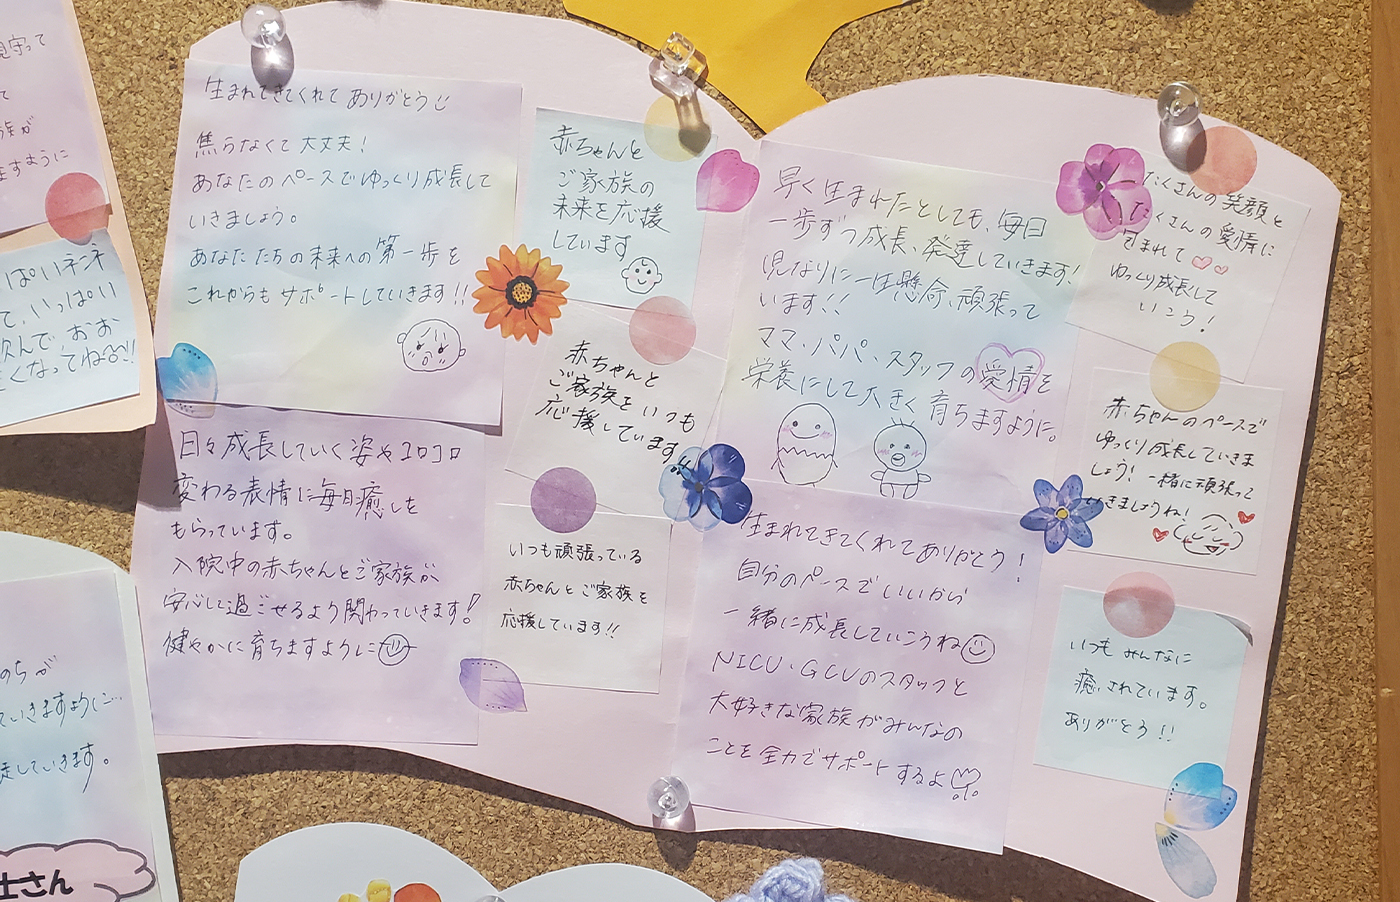 見守って
て
族が
ますように
ぱいネンネ
て、いっぱい
飲んで、おお
くなってね〜!!
のちが
ていきますように…
走していきます。
士さん
生まれてきてくれてありがとう
焦らなくて大丈夫！
あなたのペースでゆっくり成長して
いきましょう。
あなたたちの未来への第一歩を
これからもサポートしていきます!!
日々成長していく姿やコロコロ
変わる表情に毎日癒しを
もらっています。
入院中の赤ちゃんとご家族が
安心して過ごせるよう関わっていきます！
健やかに育ちますように
赤ちゃんと
ご家族の
未来を応援
しています
赤ちゃんと
ご家族をいつも
応援しています
いつも頑張っている
赤ちゃんとご家族を
応援しています!!
早く生まれたとしても、毎日
一歩ずつ成長、発達していきます！
児なりに一生懸命、頑張って
います!!
ママ、パパ、スタッフの愛情を
栄養にして大きく育ちますように。
生まれてきてくれてありがとう！
自分のペースでいいから
一緒に成長していこうね
NICU・GCUのスタッフと
大好きな家族がみんなの
ことを全力でサポートするよ
たくさんの笑顔と
たくさんの愛情に
包まれて
ゆっくり成長して
いこう！
赤ちゃんのペースで
ゆっくり成長していきま
しょう！一緒に頑張って
いきましょうね！
いつもみんなに
癒されています。
ありがとう!!